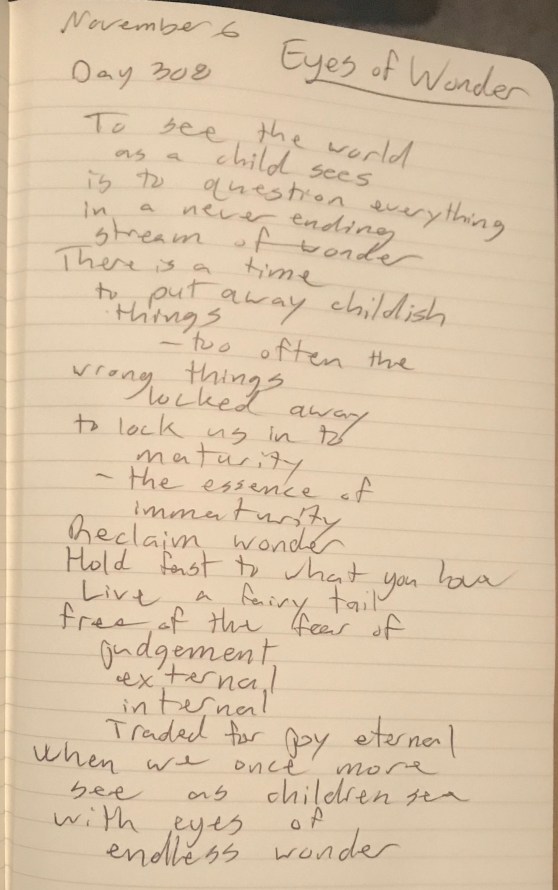 November 6
Eyes of Wonder
Day 308
To see the world
as a child sees
is to question everything
in a never ending
stream of wonder
There is a time
to put away childish
things
- too often the
wrong things
locked away
to lock us in to
maturity
- the essence of
immaturity
Reclaim wonder
Hold fast to what you love
Live a fairy tail
free of the fear of
judgement
external
internal
Traded for joy eternal
when we once more
see as children see
with eyes of
endless wonder